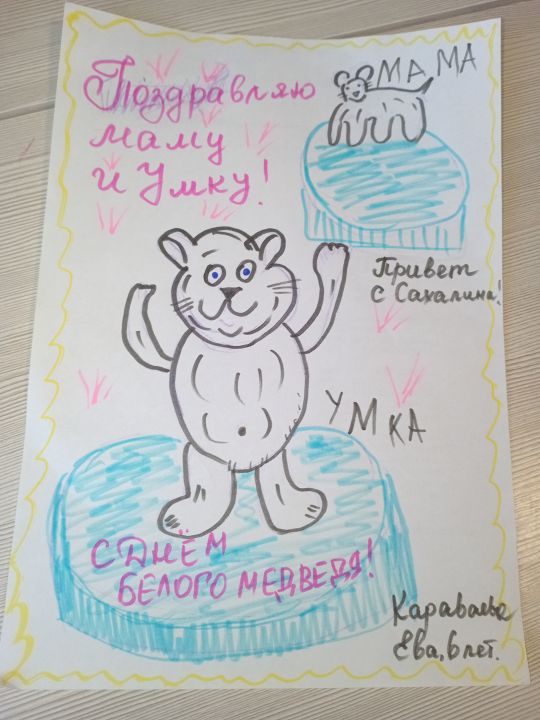 Поздравляю
маму
и Умку!
МАМА
Привет
с Сахалина!
УМКА
С ДНЁМ
БЕЛОГО МЕДВЕДЯ!
Караваева
Ева, 6 лет.